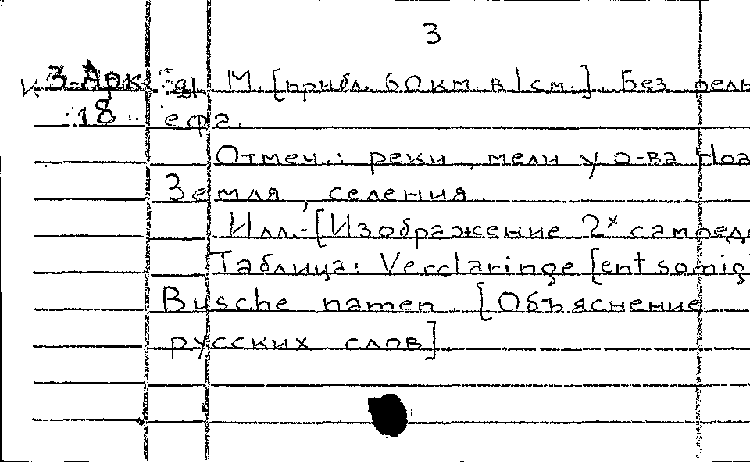 3
К 3-Арк М. [прибл. 60км в 1см.]. Без рель
18 ефа.
Отмеч.: реки, мели у о-ва Нов
Земля, селения
Илл.-[Изображение 2х самоед
Таблица: Verclaringe [ent somig
Busche namen [Объяснение
русских слов]